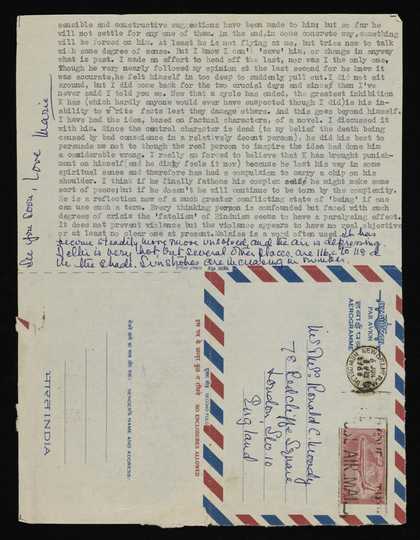 sensible and constructive suggestions have been made to him; but so far he
will not settle for any one of them. In the end, in some concrete way, something
will be forced on him. At least he is not flying at me, but tries now to talk
with some degree of sense. But I know I can't 'save' him, or change in anyway
what is past. I made an effort to head off the last, nor was I the only one.
Though he very nearly followed my opinion at the last second for he knew it
was accurate, he felt himself in too deep to suddenly pull out. I did not sit
around, but I did come back for the two crucial days and since then I've
never said I told you so. Now that a cycle has ended, the greatest inhibition
X has (which hardly anyone would ever have suspected though I did) is his in-
ability to write lest they damage others. And this goes beyond himself.
I have had the idea, based on factual characters, of a novel. I discussed it
with him. Since the central character is dead (to my belief the death being
caused by bad conscience in a relatively decent person), he did his best to
persuade me not to though the real person to inspire the idea had done him
a considerable wrong. I really am forced to believe that X has brought punish-
ment on himself and he dimly feels it now, because he lost his way in some
spiritual sense and therefore has had a compulsion to carry a chip on his
shoulder. I think if he finally fathoms his complex he might make some
sort of peace; but if he doesn't he will continue to be torn by the complexity.
He is a reflection of a much greater conflicting state of 'being' if one
can use such a term. Every thinking person is confounded but faced with such
degrees of crisis the 'fatalism' of Hinduism seems to have a paralysing effect.
It does not prevent violence but the violence appears to have no real objective
or at least no clear one at present. Malaise is a word often used. It has
become steadily more & more unsolved, and the air is depressing.
Delhi is very hot but several other places are 116° to 118° in
the shade. Sunstrokes are increasing in number.
See you soon, love Marie
भारत INDIA
SENDER'S NAME AND ADDRESS:-
NO ENCLOSURES ALLOWED
SECOND FOLD
PAR AVION
AEROGRAMME
NEW DELHI
Mr & Mrs Ronald C. Moody
7E Redcliffe Square
London, S.W. 10
England
USE AIR MAIL